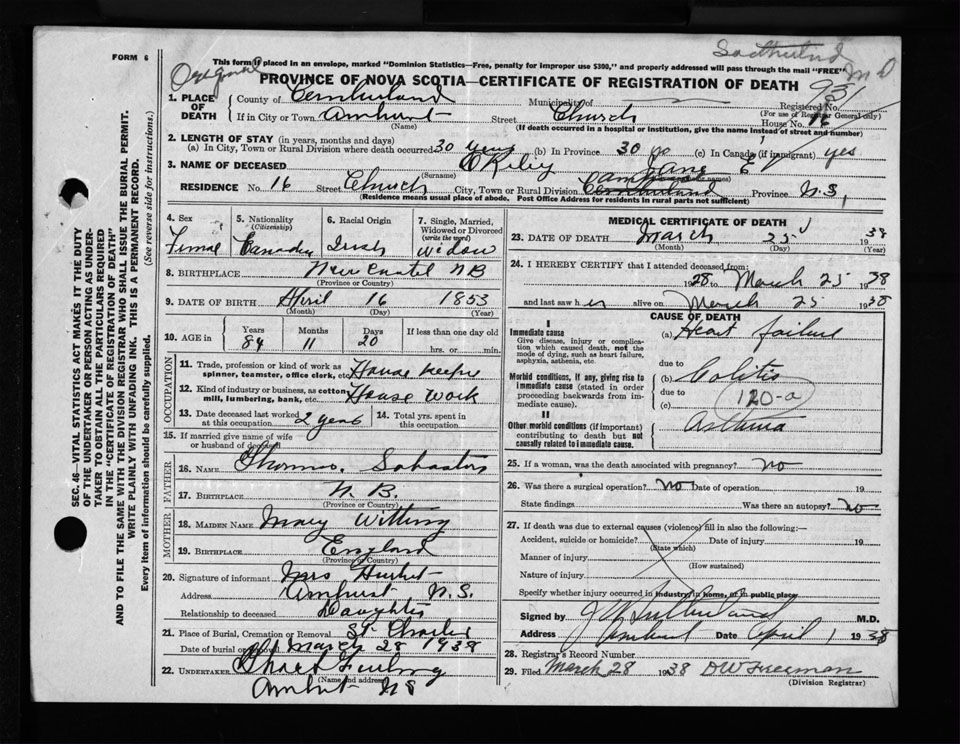 FORM 6
This form if placed in an envelope, marked "Dominion Statistics—Free, penalty for improper use $300," and properly addressed will pass through the mail "FREE"
Original
M D
PROVINCE OF NOVA SCOTIA—CERTIFICATE OF REGISTRATION OF DEATH
931
1. PLACE OF DEATH
County of Cumberland Municipality of
Registered No.
(For use of Registrar General only)
If in City or Town Amherst Street Church House No. 16
(Name) (If death occurred in a hospital or institution, give the name instead of street and number)
2. LENGTH OF STAY (in years, months and days)
(a) In City, Town or Rural Division where death occurred 30 years (b) In Province 30 yo (c) In Canada (if immigrant) yes
3. NAME OF DECEASED O'Riley Jane E
(Surname) names)
RESIDENCE No. 16 Street Church City, Town or Rural Division Cumberland Province N.S.
(Residence means usual place of abode. Post Office Address for residents in rural parts not sufficient)
4. Sex
Female
5. Nationality
(Citizenship)
Canadian
6. Racial Origin
Irish
7. Single, Married, Widowed or Divorced
(write the word)
Widow
8. BIRTHPLACE New N B
(Province or Country)
9. DATE OF BIRTH April 16 1853
(Month) (Day) (Year)
10. AGE in
Years Months Days If less than one day old
84 11 20 hrs. or min.
OCCUPATION
11. Trade, profession or kind of work as spinner, teamster, office clerk, etc. House keeper
12. Kind of industry or business, as cotton mill, lumbering, bank, etc. House work
13. Date deceased last worked at this occupation 2 years
14. Total yrs. spent in this occupation
15. If married give name of wife or husband of deceased
FATHER
16. NAME Thomas
17. BIRTHPLACE N. B.
(Province or Country)
MOTHER
18. MAIDEN NAME Mary
19. BIRTHPLACE England
(Province or Country)
20. Signature of informant Mrs
Address Amherst N.S.
Relationship to deceased Daughter
21. Place of Burial, Cremation or Removal St Charles
Date of burial or removal March 28 1938
22. UNDERTAKER
(Name and address)
Amherst N S
MEDICAL CERTIFICATE OF DEATH
23. DATE OF DEATH March 25 1938
(Month) (Day) (Year)
24. I HEREBY CERTIFY that I attended deceased from:
1928 to March 25 1938
and last saw her alive on March 25 1938
CAUSE OF DEATH
I
Immediate cause
Give disease, injury or complication which caused death, not the mode of dying, such as heart failure, asphyxia, asthenia, etc.
(a) Heart failure
due to
Morbid conditions, if any, giving rise to immediate cause (stated in order proceeding backwards from immediate cause).
(b) Colitis
due to
(c)
120-a
II
Other morbid conditions (if important) contributing to death but not causally related to immediate cause.
Asthma
25. If a woman, was the death associated with pregnancy? no
26. Was there a surgical operation? no Date of operation 19
State findings Was there an autopsy? no
27. If death was due to external causes (violence) fill in also the following:—
Accident, suicide or homicide? Date of injury 19
(State which)
Manner of injury
(How sustained)
Nature of injury
Specify whether injury occurred in industry, in home, or in public place.
Signed by Sutherland M.D.
Address Amherst Date April 1 1938
28. Registrar's Record Number
29. Filed March 28 1938 D W Freeman
(Division Registrar)
SEC. 46—VITAL STATISTICS ACT MAKES IT THE DUTY OF THE UNDERTAKER OR PERSON ACTING AS UNDERTAKER TO OBTAIN ALL THE PARTICULARS REQUIRED IN THE "CERTIFICATE OF REGISTRATION OF DEATH" AND TO FILE THE SAME WITH THE DIVISION REGISTRAR WHO SHALL ISSUE THE BURIAL PERMIT.
WRITE PLAINLY WITH UNFADING INK. THIS IS A PERMANENT RECORD.
Every item of information should be carefully supplied. (See reverse side for instructions.)